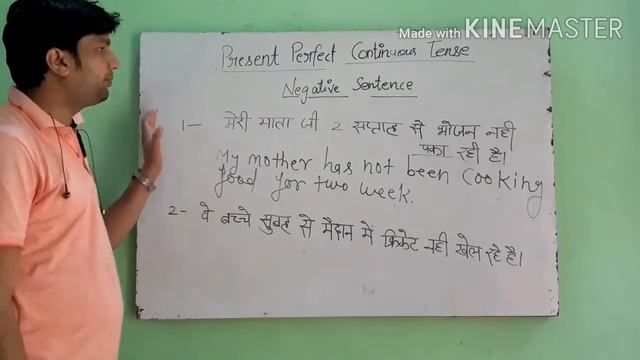 Made with KINEMASTER
Present Perfect Continuous Tense
Negative Sentence
1- मेरी माता जी 2 सप्ताह से भोजन नही
पका रही है।
My mother has not been Cooking
food for two week.
2- वे बच्चे सुबह से मैदान मे क्रिकेट नही खेल रहे है।